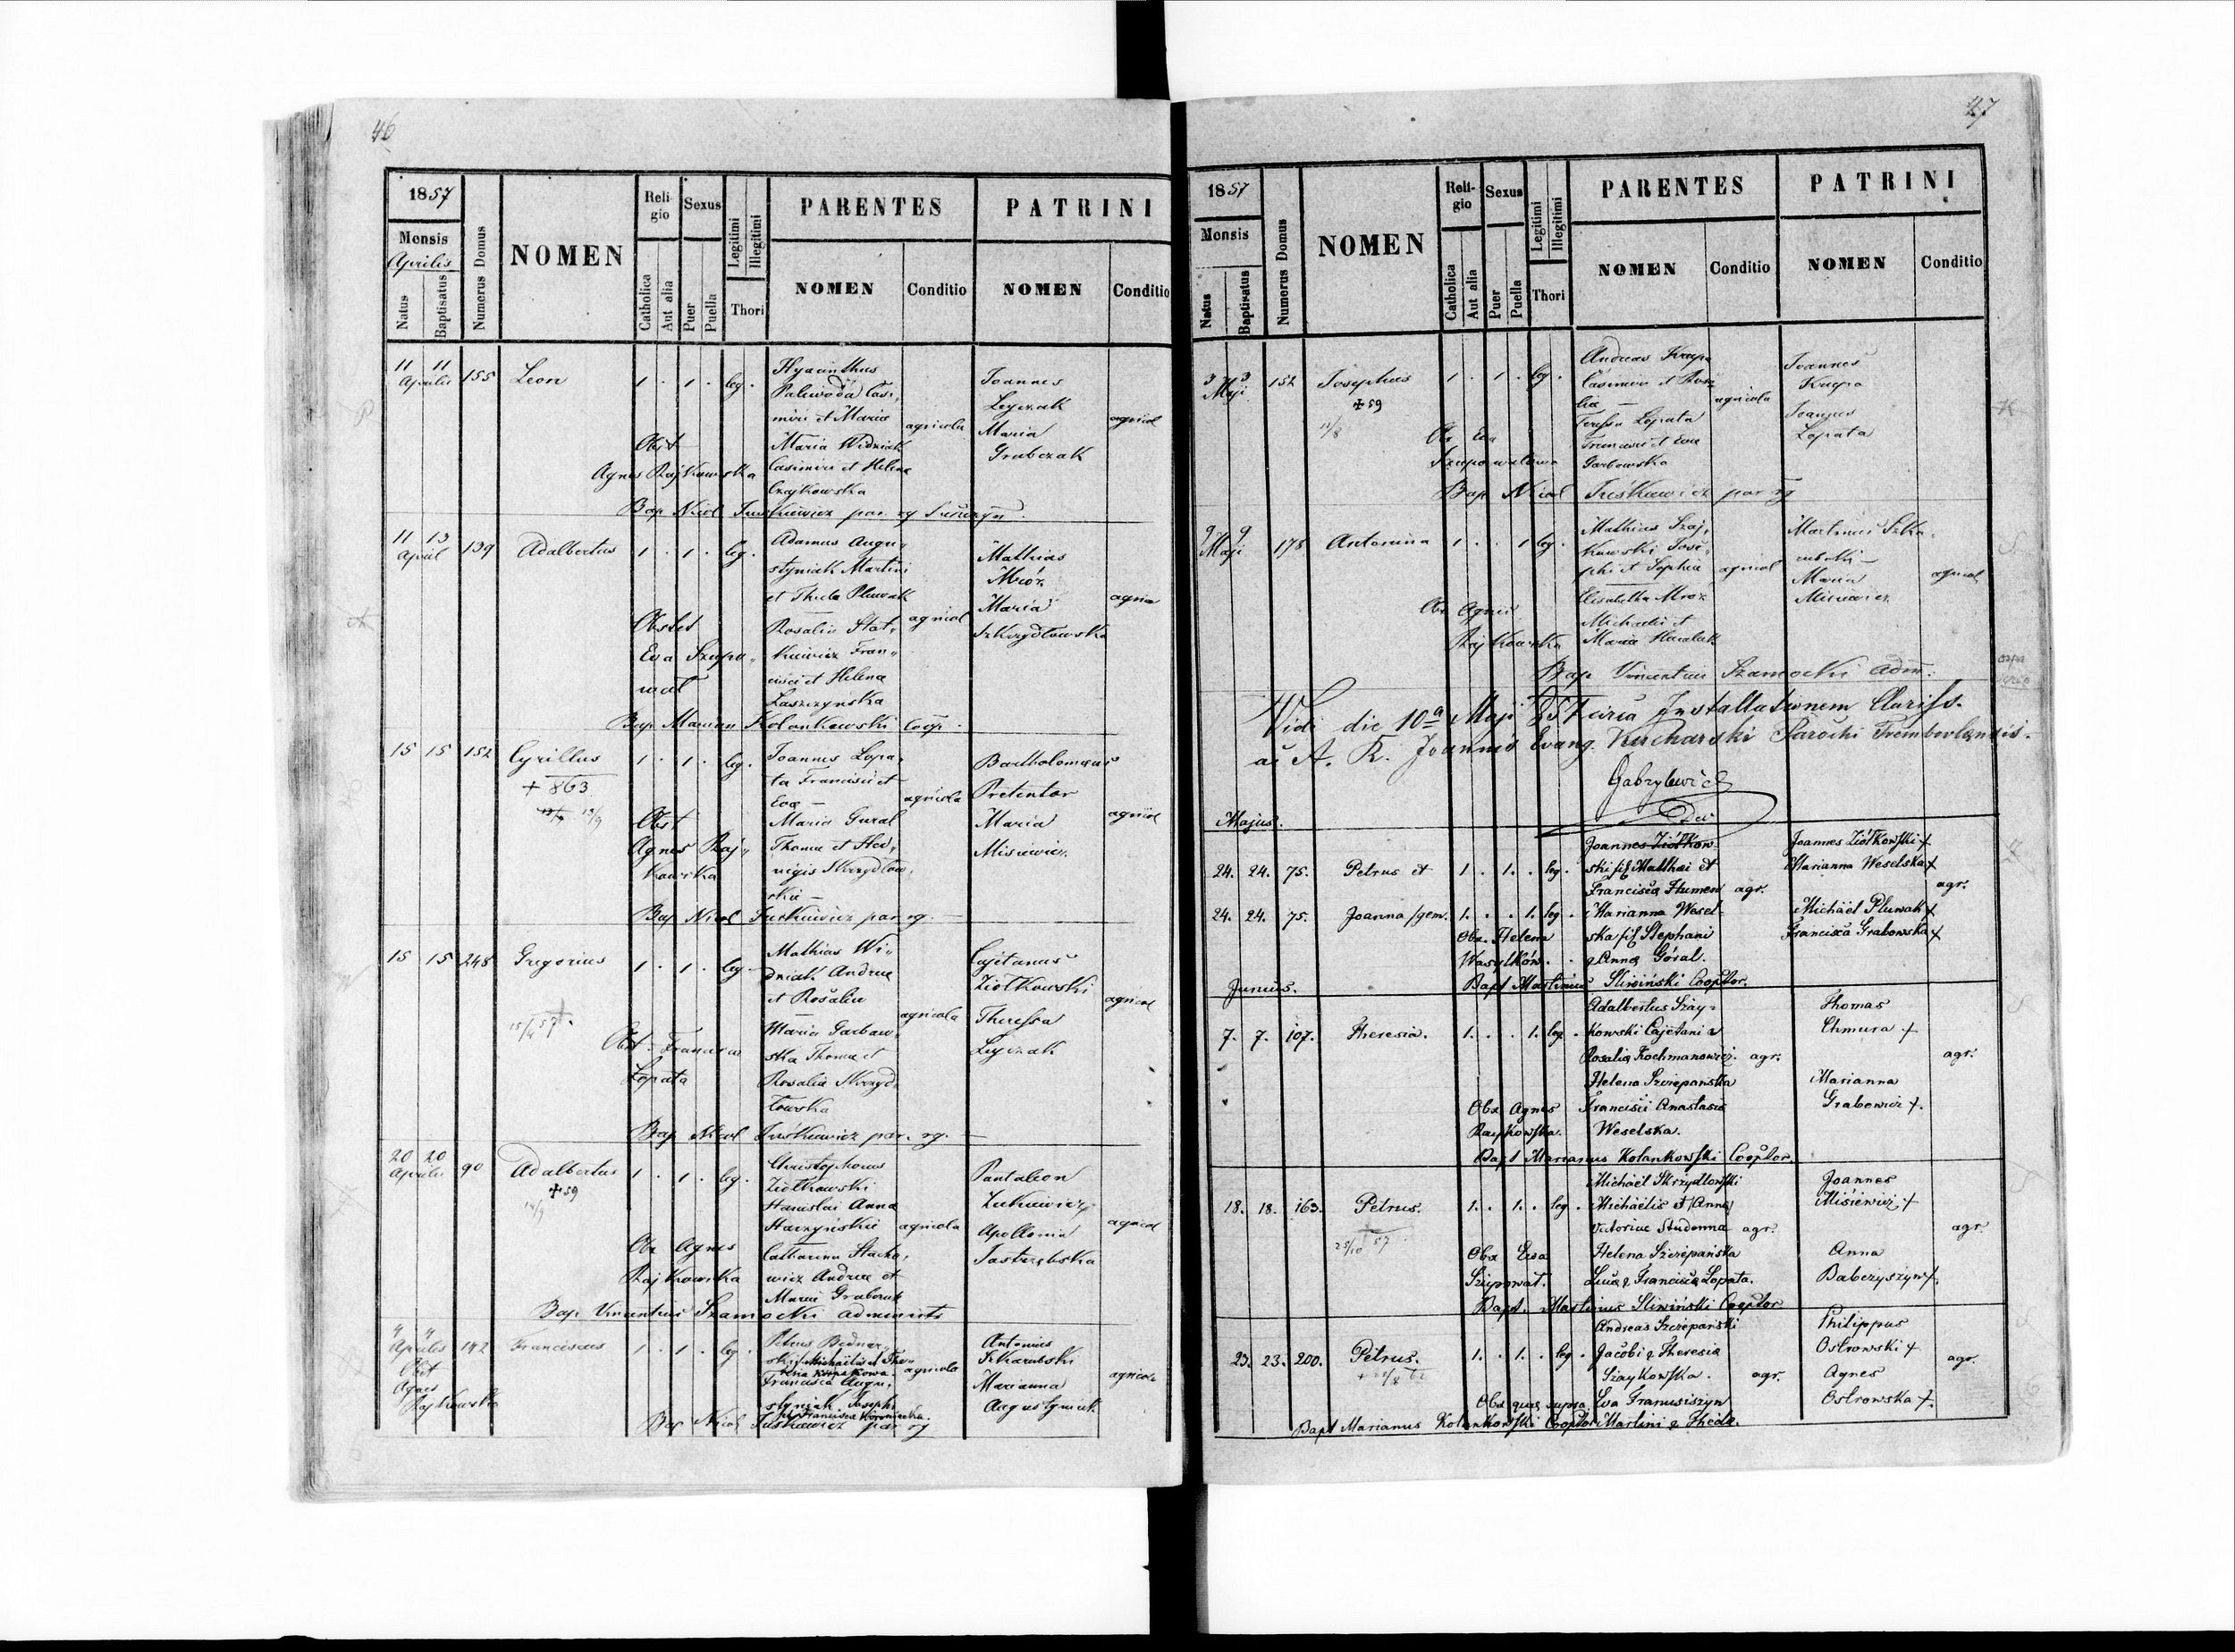 46
1857
Mensis
Aprilis
Natus
Baptisatus
Numerus Domus
NOMEN
Religio
Catholica
Aut alia
Sexus
Puer
Puella
Legitimi
Illegitimi
Thori
PARENTES
NOMEN
Conditio
PATRINI
NOMEN
Conditio
11 11 155 Leon 1 . 1 . leg. Hyacinthus
Aprilis
Paliwoda Casi,
miri et Maria
agricola
Maria Widniak
Casimiri et Helena
Czajkowska
Joannes
Leyczak
Maria
Grabczak
agricol
Obst
Agnes Rajkowska
Bap Nicol Juskiewicz par rg
11 13 139 Adalbertus 1 . 1 . leg. Adamus Augu,
April
styniak Martini
et Thecla Pluwak
agricol
Rosalia Stat,
kiewicz Fran,,
cisci et Helena
Laszczyńska
Mathias
Mróz
Maria
Szkrzydłowska
Obstet
Eva Szupo,,
wal
Bap Marian Kolankowski Coop.
15 15 152 Cyrillus 1 . 1 . leg. Joannes Lopa,
+ 863
ta Francisci et
Eva —
agricola
Maria Gural
Thomae et Hed,
vigis Skrzydłow,
ska —
Bartholomaeus
Pretentor
Maria
Misiewicz
agricol
Obst
Agnes Raj,,
kowska
Bap Nicol Juskiewicz par rg. —
15 15 248 Gregorius 1 . 1 . leg Mathias Wi,,
dniak Andrea
et Rosalia
agricola
Maria Garbow,
ska Thomae et
Rosalia Skrzyd,
łowska
Cajetanus
Ziołkowski
Theressa
Leyczak
agricol
Obst. Francisca
Łopata
Bap Nicol Juśkiewicz par. rg. —
20 20 90 Adalbertus 1 . 1 . leg. Christophorus
Aprilis
+ 59
Ziołkowski
Stanislai Anna
agricola
Catharina Stacho,
wicz Andrea et
Maria Grabczak
Pantaleon
Apollonia
Jastrzębska
agricol
Obs Agnes
Rajkowska
Bap Vincentius Szamocki administ
4 4
Aprilis 142 Franciscus 1 . 1 . leg. Petrus Bednar,,
ski f. Michaëlis et The,,
agricola
Francisca Augu,
styniak Josephi
et Francisca
Antonius
Szkarubski
Marianna
Augustyniak
agricola
Obst
Agnes
Rajkowska
Bap Nicol Juskiewicz par rg
47
1857
Mensis
Natus
Baptisatus
Numerus Domus
NOMEN
Religio
Catholica
Aut alia
Sexus
Puer
Puella
Legitimi
Illegitimi
Thori
PARENTES
NOMEN
Conditio
PATRINI
NOMEN
Conditio
3 3 152 Josephus 1 . 1 . leg. Andreas Krupa
Maji
+ 59
11/8
Casimiri et Rosa
lia —
agricola
Teressa Lopata
Francisci et Eva
Garbowska
Joannes
Krupa
Joannes
Lopata
Obs Eva
Szupowałowa
Bap Nicol Juśkiewicz par rg
9 9 178 Antonina 1 . . 1 leg. Mathias Szaj,
Maji
kowski Jose,
phi et Sophia
agricol
Elisabetha Mroz
Michaelis et
Maria
Martinus Szka,
rubski —
Maria
Misiewicz
agricol
Obs Agnes
Rajkowska
Bap Vincentius Szamocki Adm.
Vidi die 10ª Maji 857 circa Installationem Clariss.
ac A. R. Joannis Evang. Kucharski Parochi Trembovlensis.
Gabrylewicz
Dec
Majus.
24. 24. 75. Petrus et 1 . 1. . leg. Joannes Ziółkow-
ski fil Matthai et
Francisca Humen agr.
Joannes Ziółkowski +
Marianna Weselska +
agr.
24. 24. 75. Joanna /gem. 1. . . 1. leg . Marianna Wesel-
ska fil Stephani
& Anna Góral.
Michäel Pluwak +
Francisca Grabowska +
Obs. Helena
Wasylków.
Bapt Martinus Sliwiński Cooptor.
Junius.
7. 7. 107. Theresia. 1. . . 1. leg . Adalbertus Szay-
kowski Cajetani &
Rosalia Kochmanowicz. agr.
Helena Szczepańska
Francisci Anastasia
Weselska.
Thomas
Chmura +
agr.
Marianna
Grabowicz +.
Obs Agnes
Raykowska.
Bapt Marianus Kolankowski Cooptor.
18. 18. 163. Petrus. 1. . 1. . leg . Michaël Skrzydlowski
Michaëlis et /Anna/
Victoriae Studenna agr.
Helena Szczepańska
Luca & Francisca Lopata.
Joannes
Misiewicz +
agr.
Anna
Babczyszyn +.
25/10 57
Obs Eva
Szupowat.
Bapt. Martinus Sliwiński Cooptor
23. 23. 200. Petrus. 1. . 1. . leg . Andreas Szczepański
Jacobi & Theresia
Szaykowska. agr.
Eva Franusiszyn
Martini & Thecla.
Philippus
Ostrowski +
agr.
Agnes
Ostrowska +.
Obs quae supra.
Bapt Marianus Kolankowski Cooptor